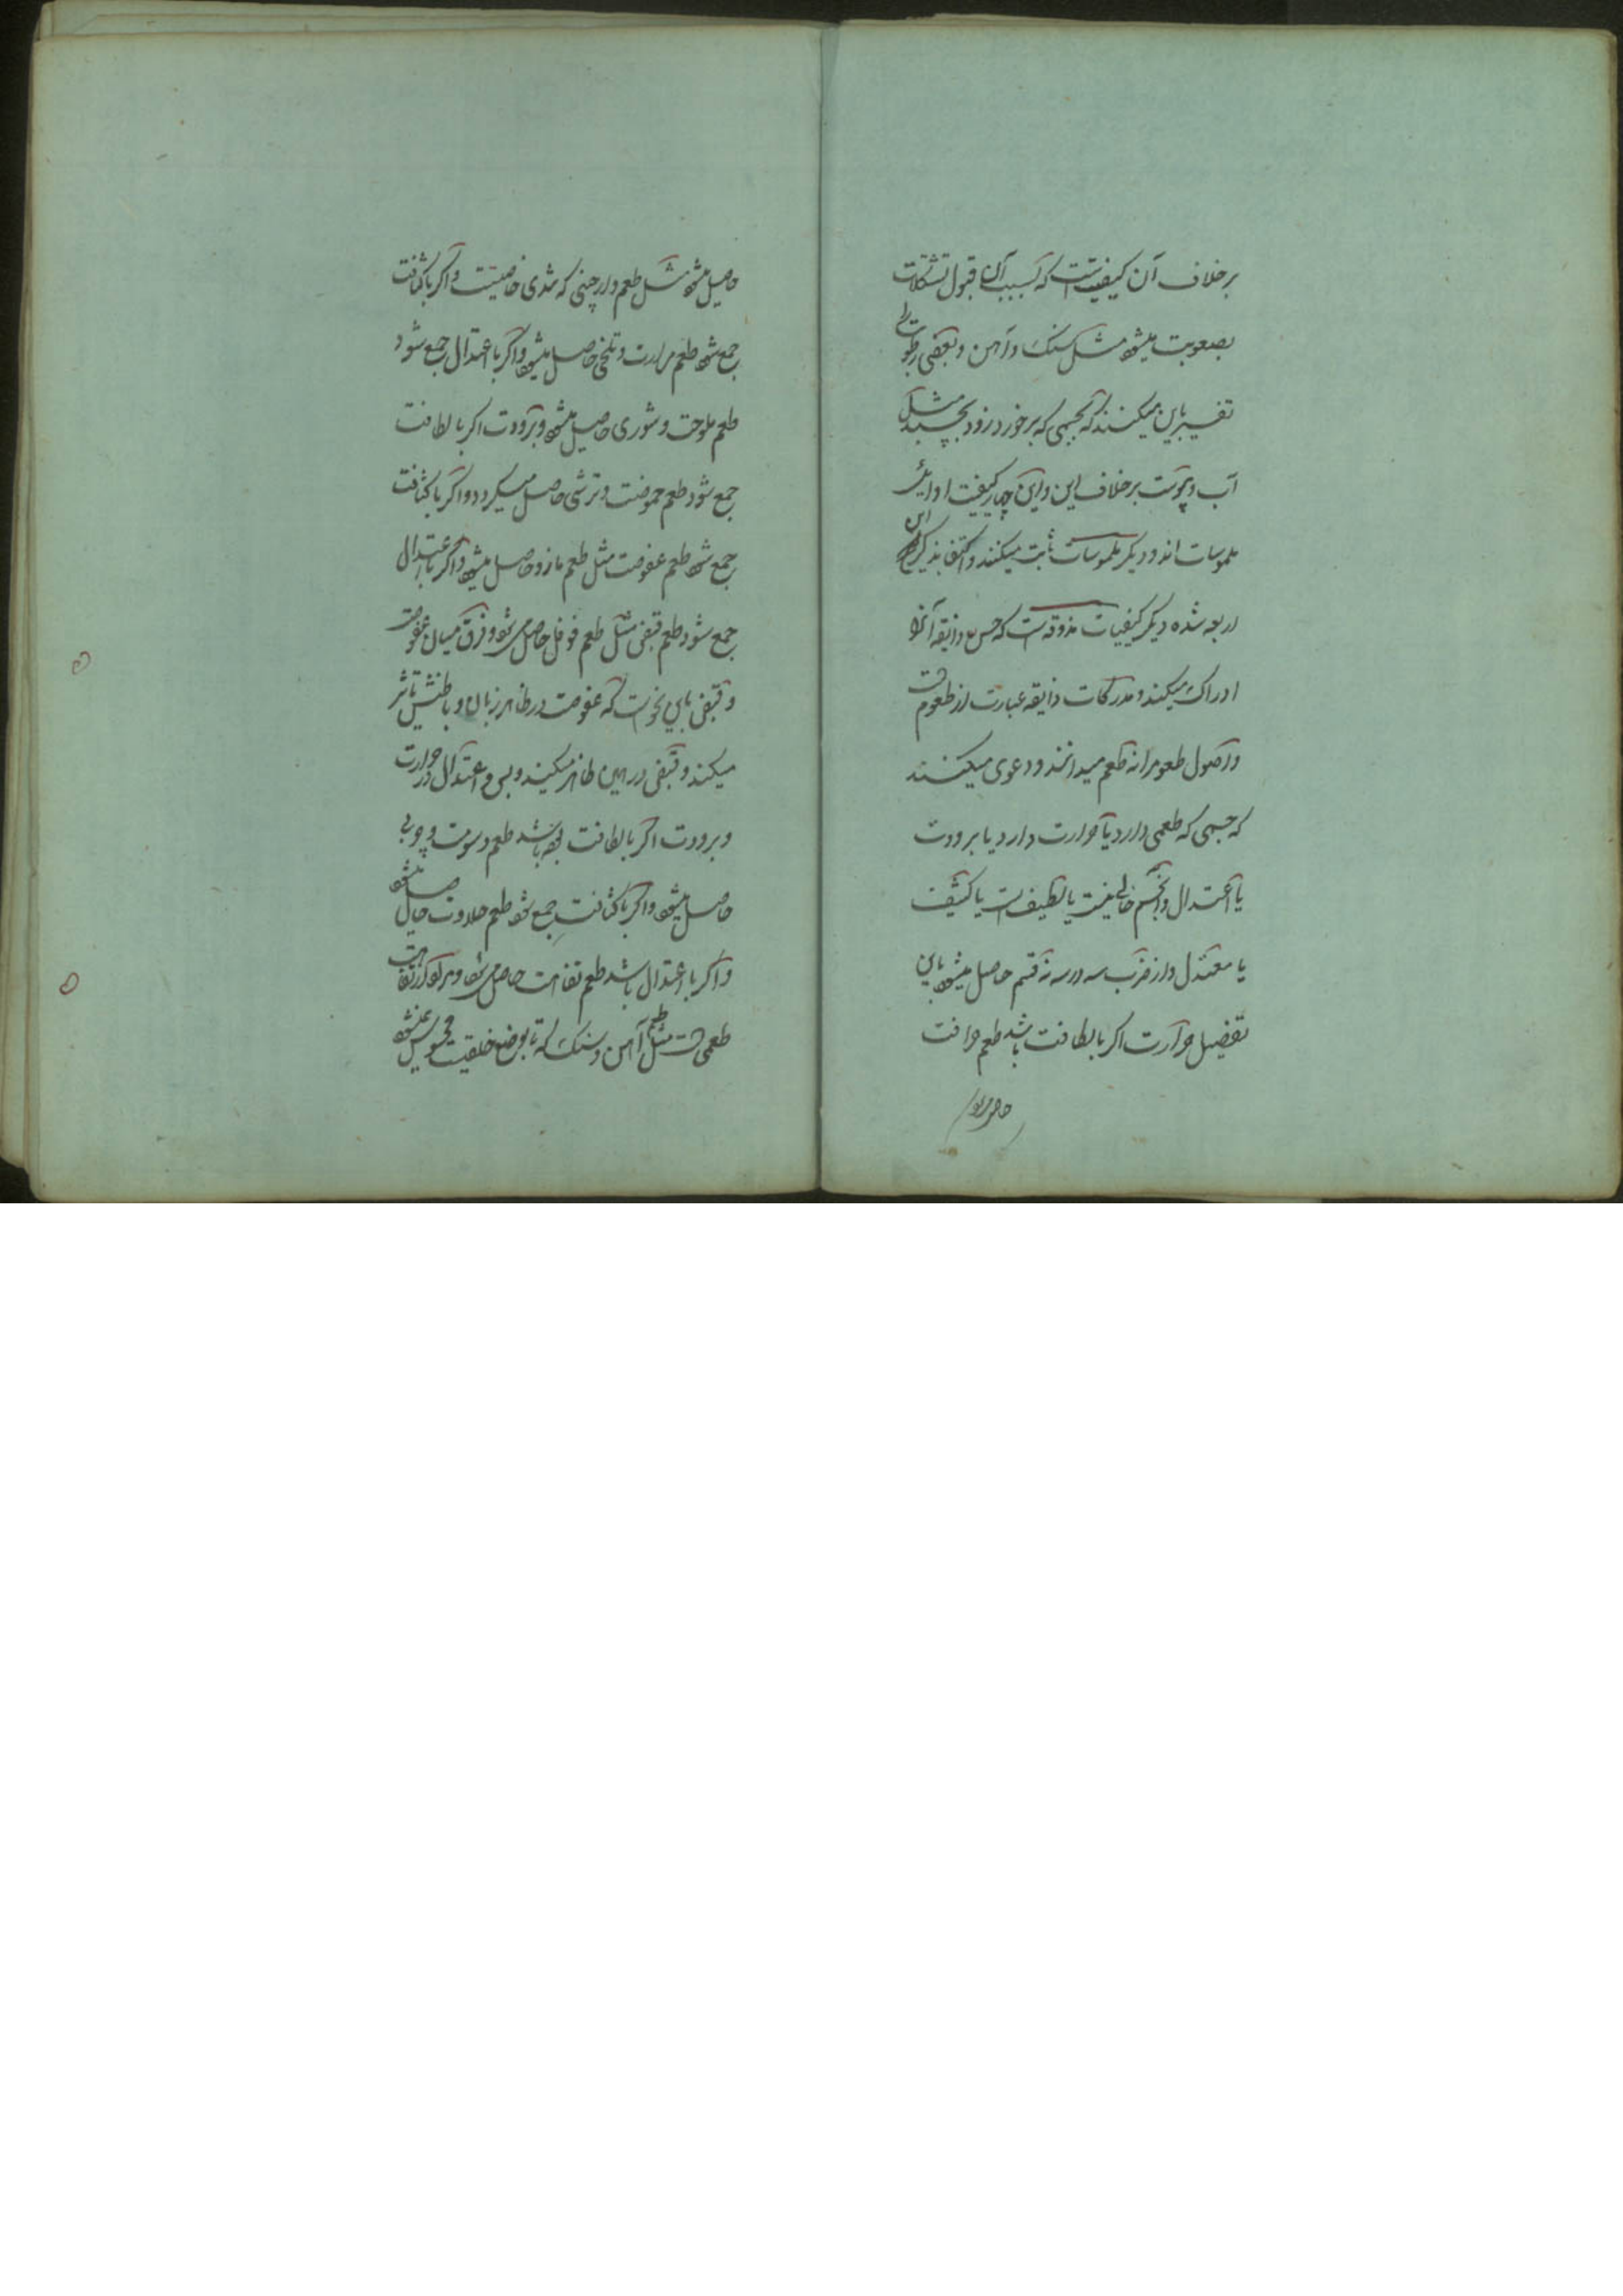 برخلاف آن کیفیتست که بسبب آن قبول تشکلات
بصعوبت میشود مثل سنک و آهن و بعضی رطوبت را
تفسیر باین میکنند که بجسمی که برخورد زود بچسپد مثل
آب و یبوست برخلاف این و این چهار کیفیت اوایل
ملموسات اند و دیکر ملموسات ثابت میکنند و اکتفا بذکر این
اربعه شده دیکر کیفیات مذوقه است که حس ذایقه آنرا
ادراک میکند و مدرکات ذایقه عبارت از طعوم است
و اصول طعوم را نه طعم میدانند و دعوی میکنند
که جسمی که طعمی دارد یا حرارت دارد یا برودت
یا اعتدال و آنجسم خالی نیست یا لطیف است یا کثیف
یا معتدل و از ضرب سه در سه نه قسم حاصل میشود باین
تفضیل حرارت اکر با لطافت باشد طعم حرافت
حاصل میشود
حاصل میشود مثل طعم دارچینی که تندی خاصیتست و اکر با کثافت
جمع شود طعم مرارت و تلخی حاصل میشود و اکر با اعتدال جمع شود
طعم ملوحت و شوری حاصل میشود و برودت اکر با لطافت
جمع شود طعم حموضت و ترشی حاصل میکردد و اکر با کثافت
جمع شود طعم عفوصت مثل طعم مازو حاصل میشود و اکر با اعتدال
جمع شود طعم قبض مثل طعم فوفل حاصل میشود و فرق میان عفوصت
و قبض باین نحو است که عفوصت در ظاهر زبان و باطنش تاثیر
میکند و قبض در همین ظاهر میکند و بس و اعتدال در حرارت
و برودت اکر با لطافت بوده باشد طعم دسومت و چربی
حاصل میشود و اکر با کثافت جمع شود طعم حلاوت حاصل میشود
و اکر با اعتدال باشد طعم تفاهت حاصل میشود و مراد از تفاهت
طعمی است مثل طعم آهن و سنک که تا بوضع خلقیت محسوس نمیشود